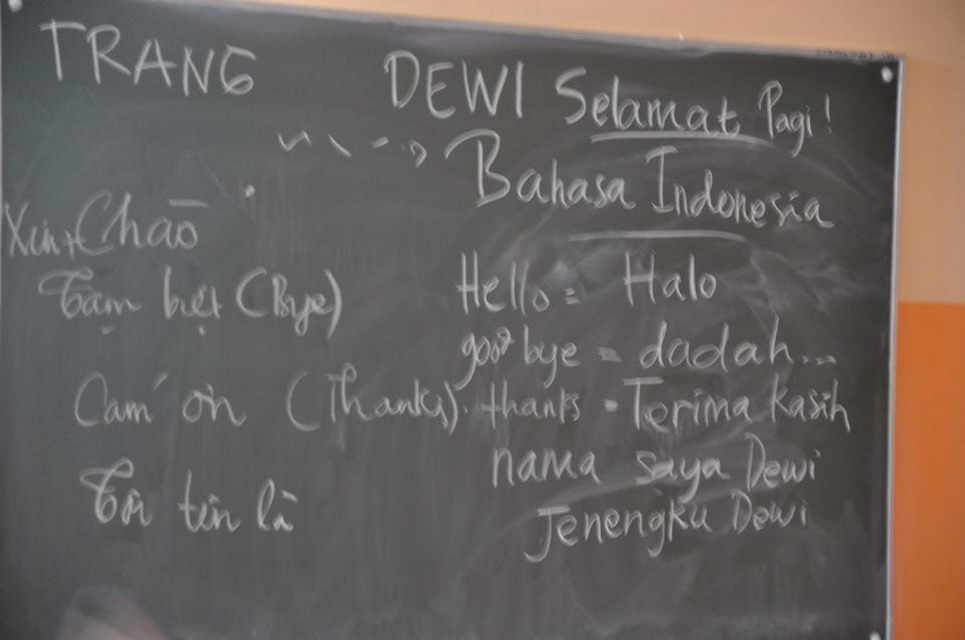 TRANG
Xin Chào
Tạm biệt (Bye)
Cám ơn (Thanks)
Tôi tên là
DEWI Selamat Pagi!
Bahasa Indonesia
Hello = Halo
good bye = dadah...
thanks = Terima Kasih
nama saya Dewi
Jenengku Dewi